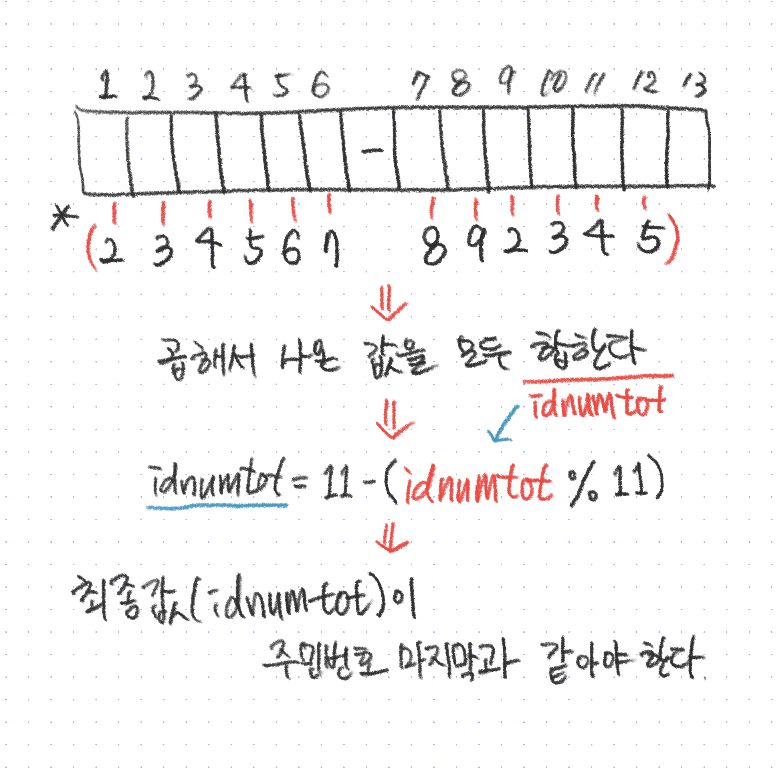 1 2 3 4 5 6 7 8 9 10 11 12 13
-
* (2 3 4 5 6 7 8 9 2 3 4 5)
⇓
곱해서 나온 값을 모두 합한다
⇓ idnumtot
idnumtot = 11 - (idnumtot % 11)
⇓
최종값(idnumtot)이
주민번호 마지막과 같아야 한다